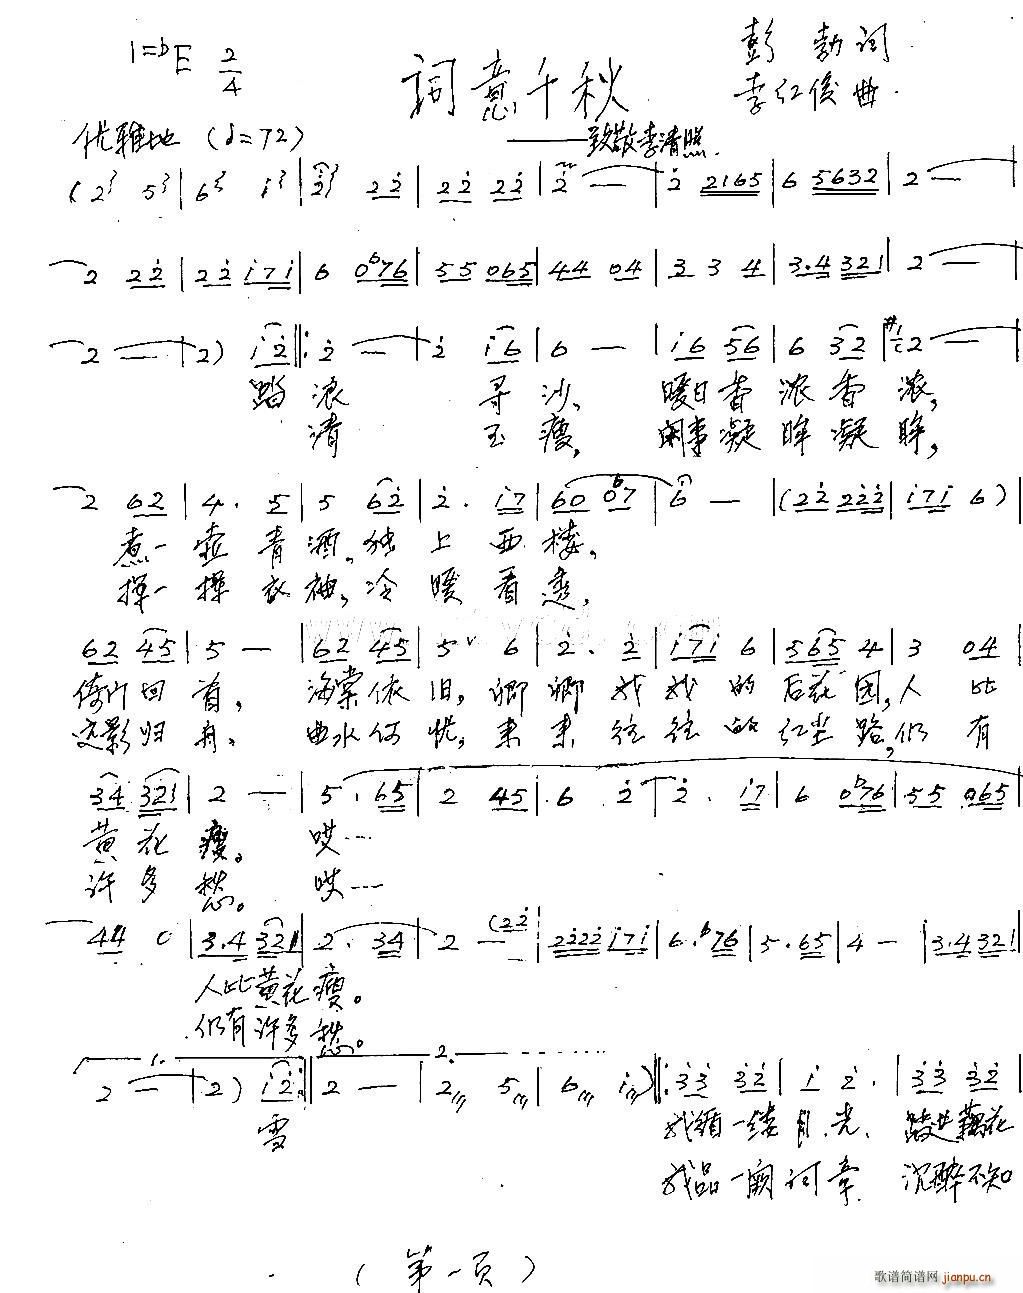 1=♭E 2/4
词意千秋
彭勃 词
李红俊 曲
优雅地 (♩=72)
——致敬李清照
(2 5 | 6 i | 2̇ 22̇ | 22̇ 22̇ | 2̇ — | 2̇ 2165 | 6 5632 | 2 — |
2 22̇ | 22̇ i7i | 6 0♭76 | 55 065 | 44 04 | 3 3 4 | 3.4 321 | 2 — |
2 — | 2) i2̇ |: 2̇ — | 2̇ i6 | 6 — | i6 56 | 6 32 | 2 — |
踏浪 寻沙, 暖日香浓香浓,
清 玉瘦, 闲事凝眸凝眸,
2 62 | 4. 5 | 5 62̇ | 2̇. i7 | 60 0♭7 | 6 — | (22̇ 22̇2̇ | i7i 6) |
煮一壶青酒,独上西楼,
挥一挥衣袖,冷暖看透,
62 45 | 5 — | 62 45 | 5 6 | 2̇. 2̇ | i7i 6 | 565 4 | 3 04 |
倚门回首, 海棠依旧,卿卿我我的后花园,人比
定影归舟, 曲水何忧,来来往往的红尘路,仍有
34 321 | 2 — | 5. 65 | 2 45 | 6 2̇ | 2̇. i7 | 6 0♭76 | 55 065 |
黄花瘦。 哎……
许多愁。 哎……
44 0 | 3.4 321 | 2. 34 | 2 — (22̇ | 22̇22̇ i7i | 6.♭76 | 5.65 | 4 — | 3.4 321 |
人比黄花瘦。
仍有许多愁。
1. 2.
2 — | 2) i2̇ :| 2 — | 2 5 | 6 i) |: 3̇3̇ 3̇2̇ | i 2̇. | 3̇3̇ 3̇2̇ |
雪 我循一缕月光、 藕花
我品一阕词章 沉醉不知
(第一页)
歌谱简谱网 jianpu.cn